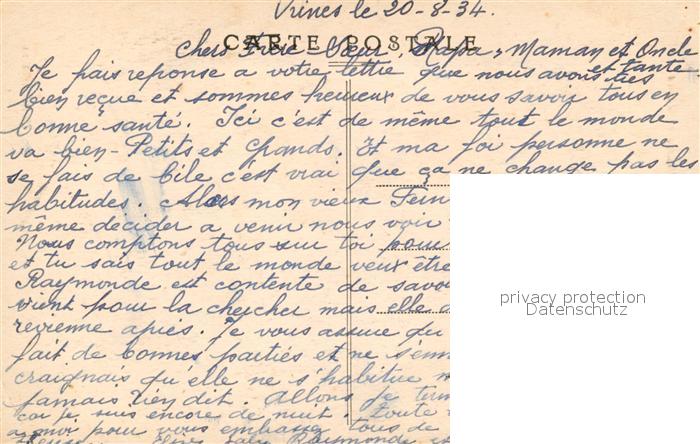 Vrines le 20-8-34.
CARTE POSTALE
Chers Frère - Sœur, Papa, Maman et Oncle
et tante
Je fais reponse a votre lettre que nous avons
bien reçue et sommes heureux de vous savoir tous en
bonne santé. Ici c'est de même tout le monde
va bien - Petits et Grands. Et ma foi personne ne
se fais de bile c'est vrai que ça ne change pas les
habitudes. Alors mon vieux
même decider a venir nous voir
Nous comptons tous sur toi pour
et tu sais tout le monde veux être
Raymonde est contente de
vient pour la chercher mais elle
revienne après. Je vous assure qu
fait de bonnes parties et ne
craignais qu'elle ne s'habitue
jamais rien dit. Allons je
car je suis encore de nuit. Toute
a moi pour vous embrasser tous de
Raymonde
privacy protection
Datenschutz